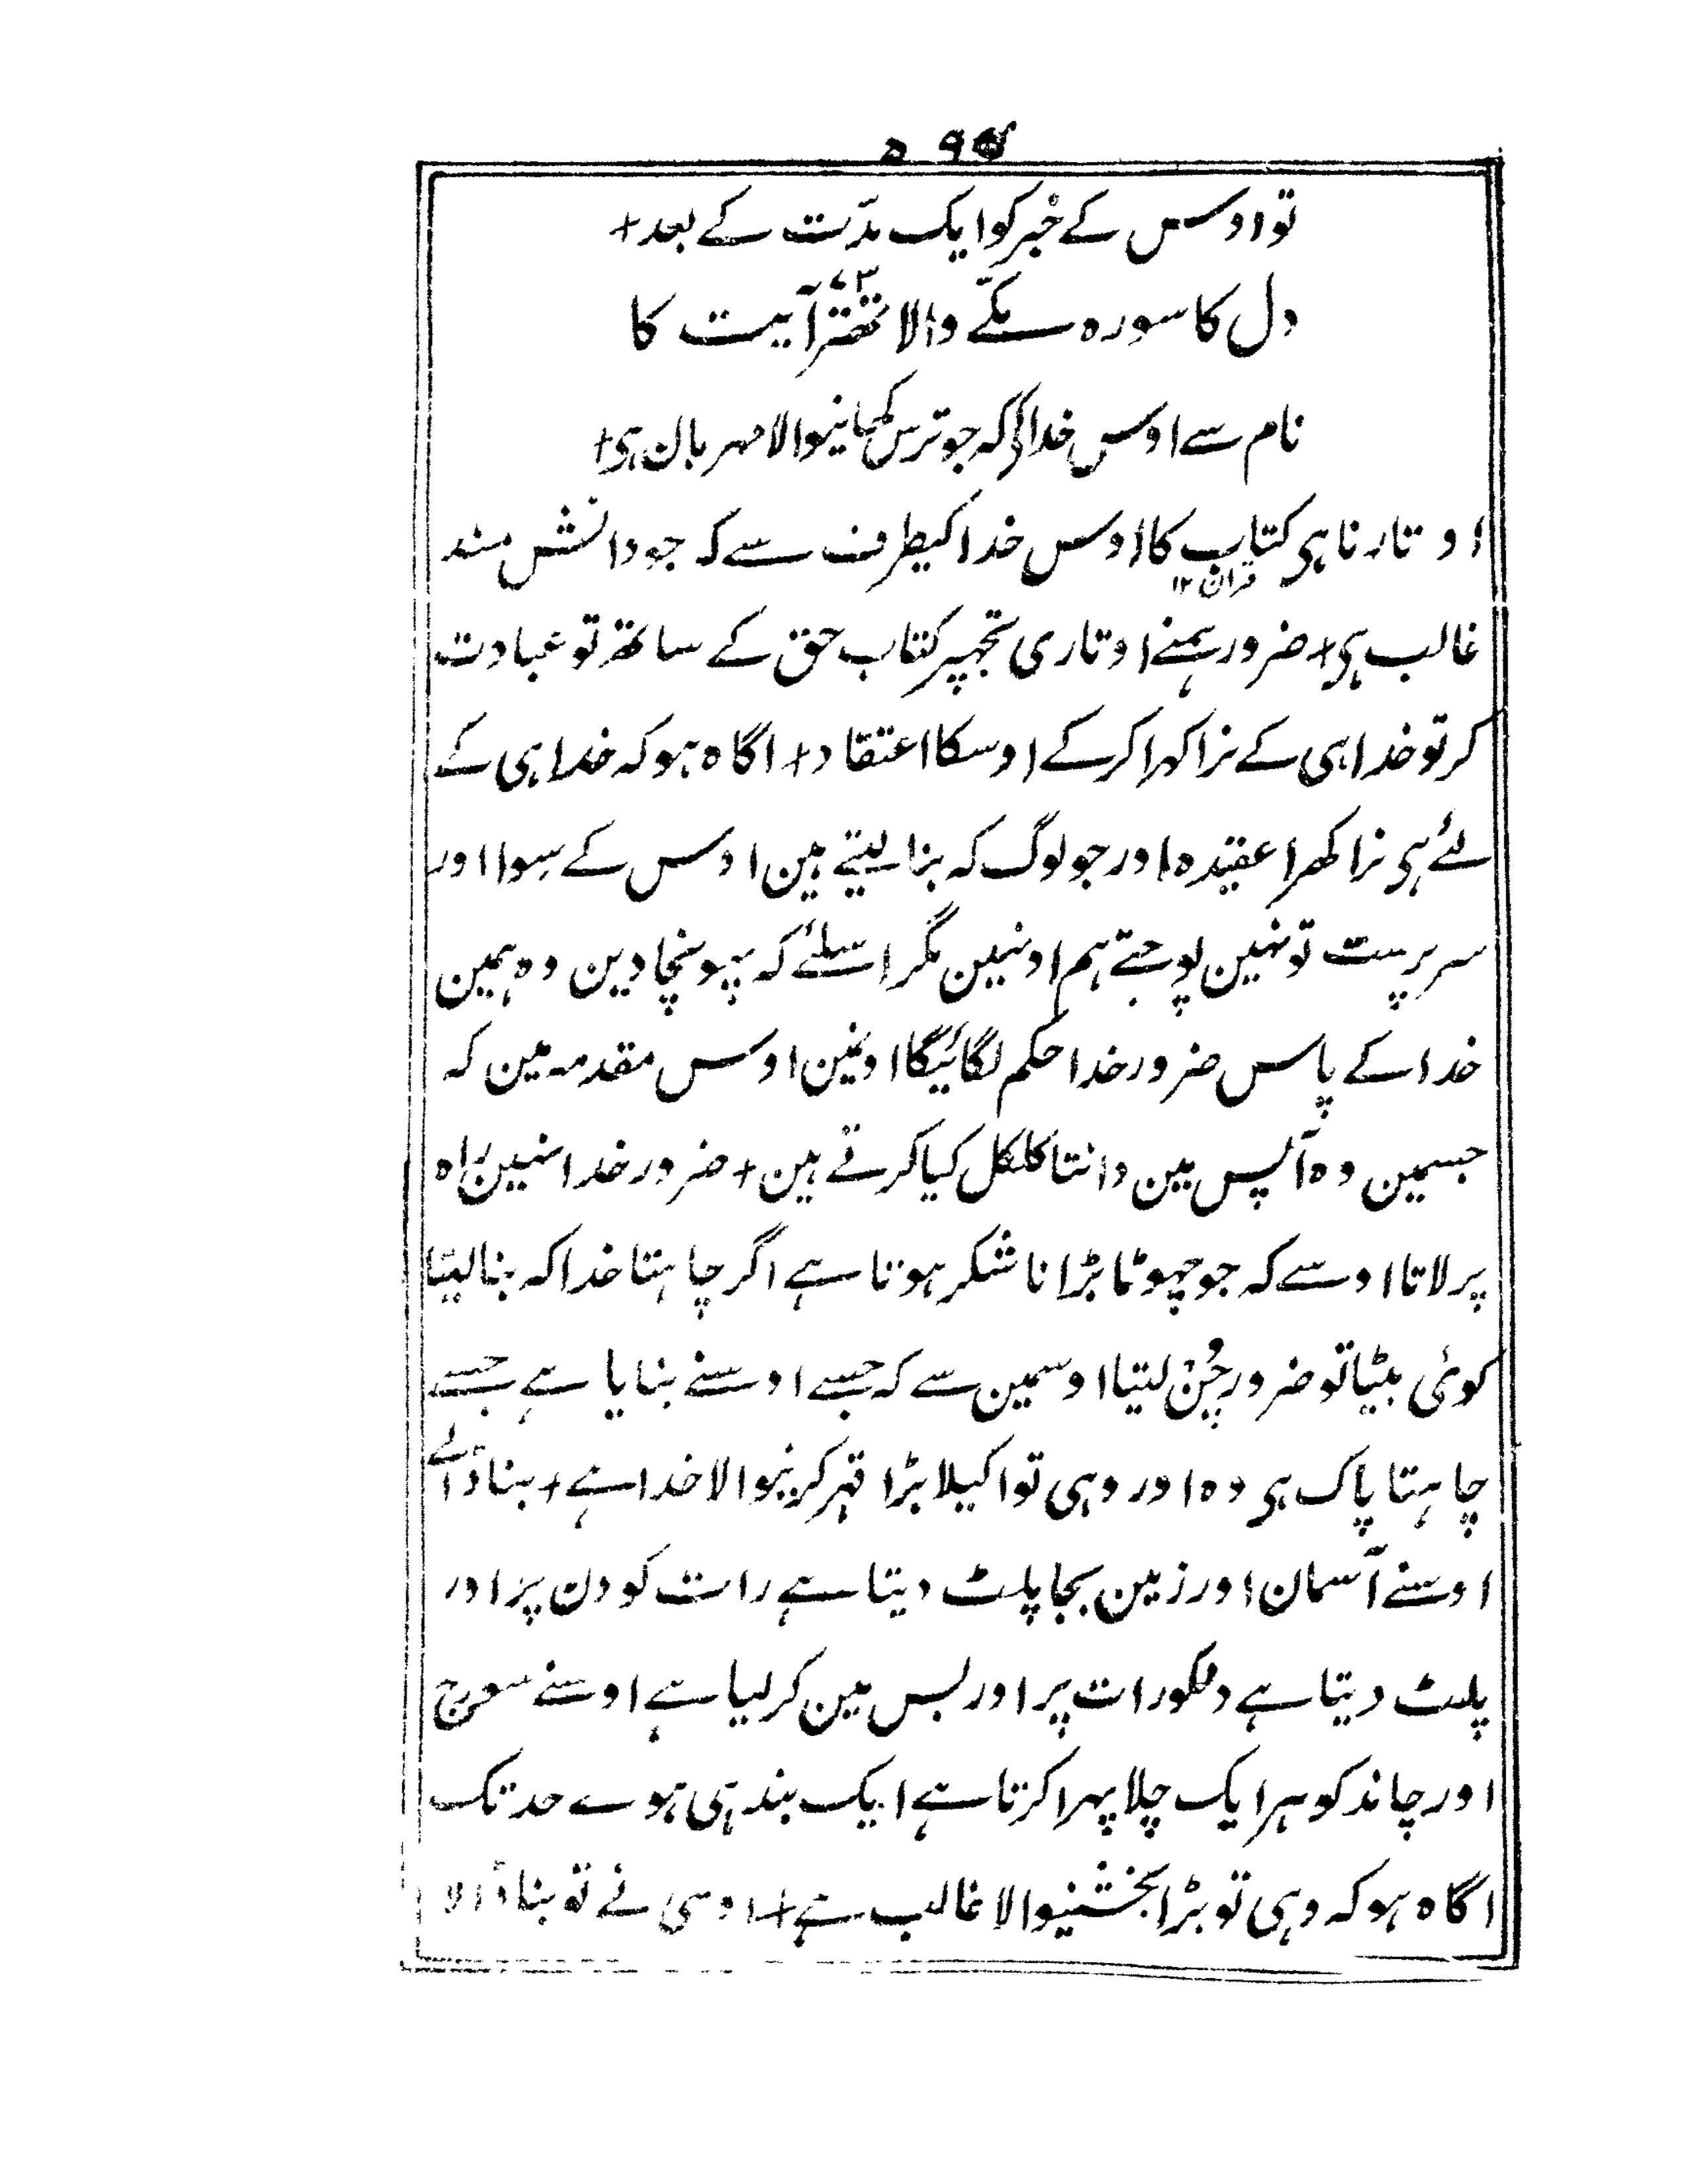 تو اوس کے خبر کو ایک مدّت کے بعد +
دل کا سورہ مکّے والا تہتّر آیت کا
۷۳
نام سے اوس خدا کی کہ جو ترس کھانیوالا مہربان ہی +
اوتارنا ہی کتاب کا اوس خدا کیطرف سے کہ جو دانش مند
قران ۱۲
غالب ہی + ضرور ہمنے اوتاری تجھپر کتاب حق کے ساتھ تو عبادت
کر تو خدا ہی کے نرا کہرا کرکے اوسکا اعتقاد + اگاہ ہو کہ خدا ہی کے
لئے ہی نرا کھرا عقیدہ اور جو لوگ کہ بنا لیتے ہین اوس کے سوا اور
سرپرست تو نہین پوجتے ہم اونہین مگر اسلئے کہ پہونچادین وہ ہمین
خدا کے پاس ضرور خدا حکم لگائیگا اونمین اوس مقدمہ مین کہ
جسمین وہ آپس مین دانتا کلکل کیا کرتے ہین + ضرور خدا نہین راہ
پر لاتا اوسے کہ جو جھوٹا بڑا ناشکر ہوتا ہے اگر چاہتا خدا کہ بنا لیتا
کوئی بیٹا تو ضرور چُن لیتا اوسمین سے کہ جسے اوسنے بنایا ہے جسے
چاہتا پاک ہی وہ اور وہی تو اکیلا بڑا قہر کرنیوالا خدا ہے + بنا ڈالے
اوسنے آسمان اور زمین بجا پلٹ دیتا ہے رات کو دن پر اور
پلٹ دیتا ہے دنکو رات پر اور بس مین کر لیا ہے اوسنے سورج
اور چاند کو ہر ایک چلا پہرا کرتا ہے ایک بندہی ہوے حد تک
اگاہ ہو کہ وہی تو بڑا بخشنیوالا غالب ہے + اوسی نے تو بنا ڈالا